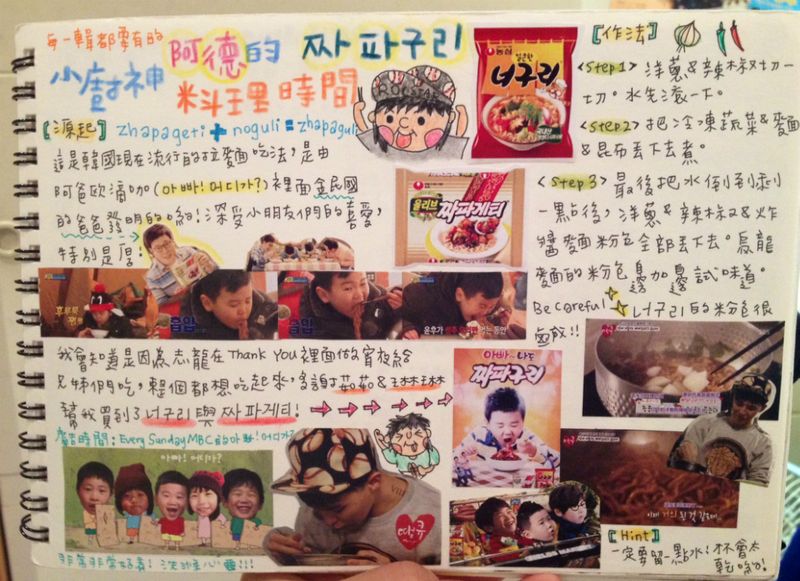 每一輯都要有的
小廚神
阿德的 짜파구리
料理時間
【源起】 zhapageti + noguli = zhapaguli
這是韓國現在流行的拉麵吃法,是由
阿爸歐滴咖(아빠!어디가?)裡面金民國
的爸爸發明的喲!深受小朋友們的喜愛,
特別是厚!
ROCKSTAR
농심
얼큰한
너구리
올리브
짜파게티
후루룩
쩝
흡입
흡입
윤후가
먹는 동안
我會知道是因為志龍在Thank You裡面做的宵夜給
兄妹們吃,整個都想吃起來,多謝茹茹&琳琳
幫我買到了너구리與짜파게티! → → → → → →
廣告時間:Every Sunday MBC的아빠!어디가?
아빠! 어디가?
非常非常好看!洗滌心靈!!!
땡큐
아빠~ 나도
짜파구리
【作法】
<Step1> 洋蔥&辣椒切一
切。水先滾一下。
<Step2> 把冷凍蔬菜&麵
&昆布丟下去煮。
<Step3> 最後把水倒到剩
一點後,洋蔥&辣椒&炸
醬麵粉包全部丟下去。烏龍
麵的粉包邊加邊試味道。
Be careful 너구리的粉包很
鹹欸!!
이제 거의 된 것 같애
【Hint】
一定要留一點水!才不會太
乾喲!